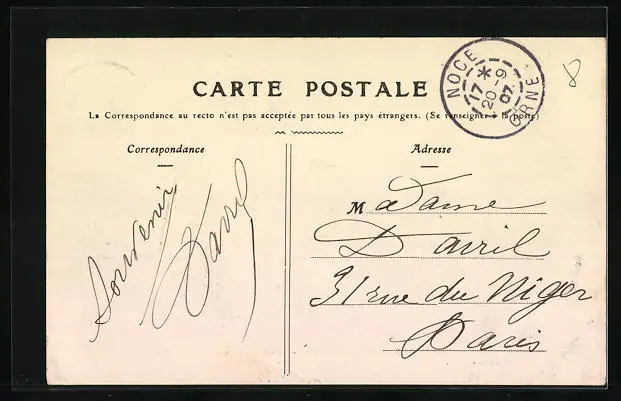 CARTE POSTALE
La Correspondance au recto n'est pas acceptée par tous les pays étrangers. (Se renseigner à la poste)
NOCE ORNE
17 *
20 - 9
07
8
Correspondance
Souvenir
Davril
Adresse
Madame
Davril
31 rue du Niger
Paris